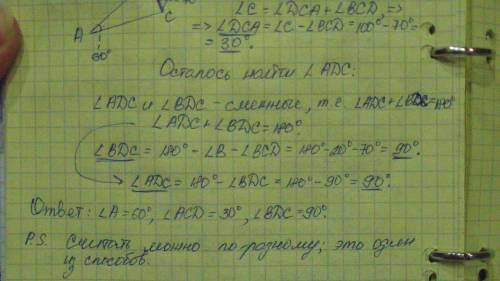 ∠C = ∠DCA + ∠BCD =>
=> ∠DCA = ∠C - ∠BCD = 100° - 70° =
= 30°.
A
C
60°
Осталось найти ∠ADC:
∠ADC и ∠BDC - смежные, т.е. ∠ADC + ∠BDC = 180°
∠ADC + ∠BDC = 180°.
∠BDC = 180° - ∠B - ∠BCD = 180° - 20° - 70° = 90°.
∠ADC = 180° - ∠BDC = 180° - 90° = 90°.
Ответ: ∠A = 60°, ∠ACD = 30°, ∠BDC = 90°.
P.S. Считать можно по разному; это один
из способов.